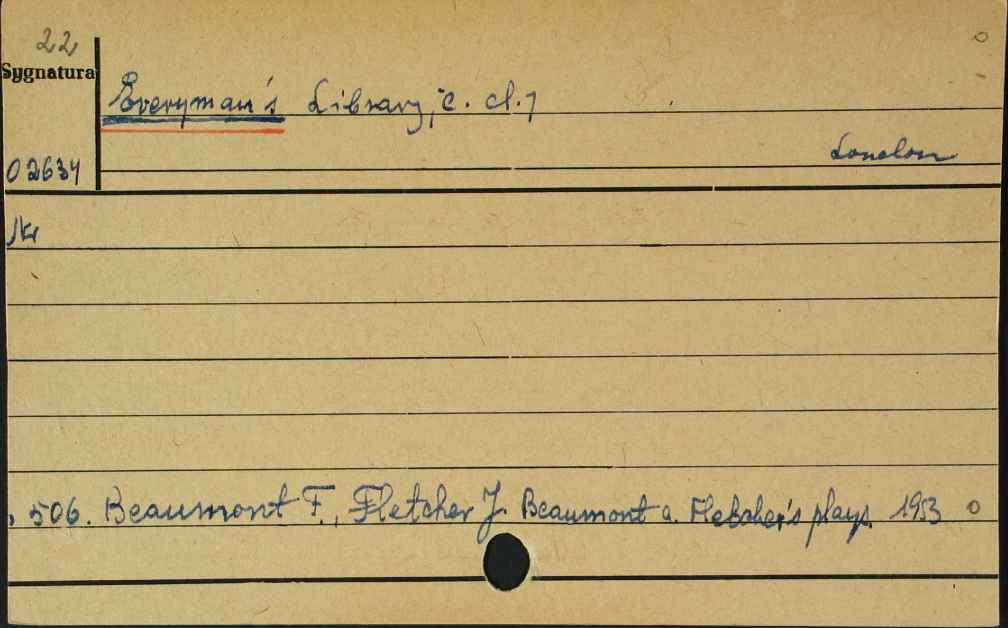 22
Sygnatura
Everyman's Library, c. cd. 7
London
02634
Nr
506. Beaumont F., Fletcher J. Beaumont a. Fletcher's plays 1953